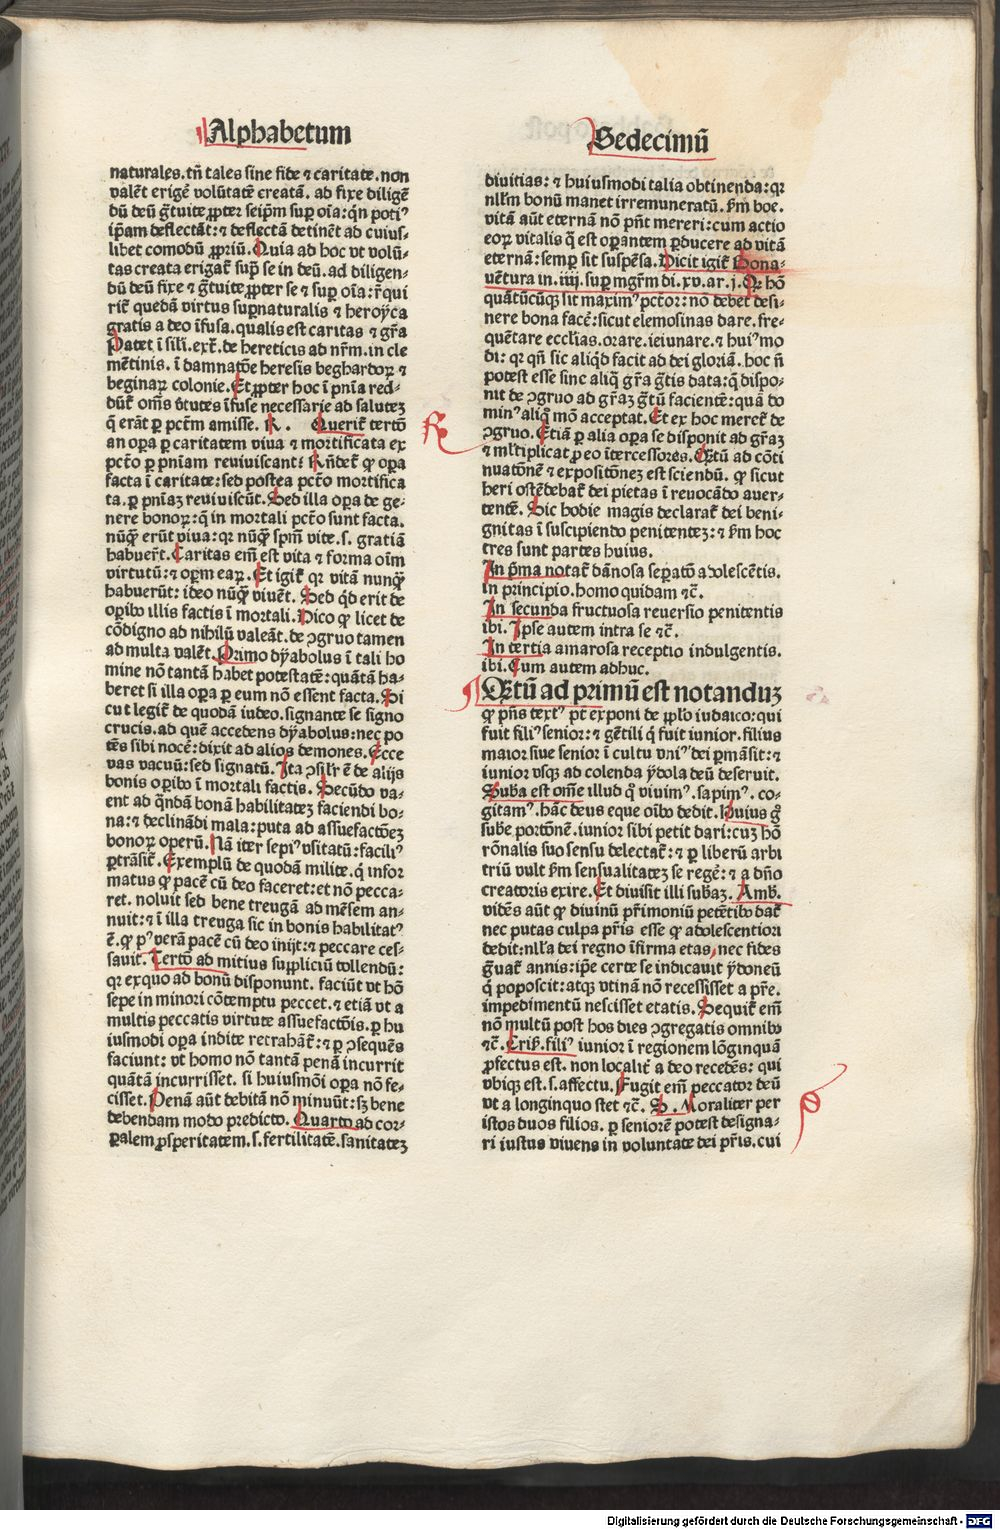 Alphabetum
naturales. tñ tales sine fide ⁊ caritate. non
valẽt erigẽ volũtatẽ creatã. ad fixe diligẽ
dũ deũ g̃tuite ꝓpter seip̃m sup̱ oĩa: q̃n poti⁹
ip̃am deflectãt: ⁊ deflectã detinẽt ad cuius-
libet comodũ ꝓpriũ. Quia ad hoc vt volũ-
tas creata erigat̃ sup̱ se in deũ. ad diligen-
dũ deũ fixe ⁊ g̃tuite ꝓpter se ⁊ sup̱ oĩa: r̃qui
rit̃ quedã virtus sup̱naturalis ⁊ heroyca
gratis a deo ĩfusa. qualis est caritas ⁊ gr̃a
Patet ĩ sil̃i. ext̃. de hereticis ad nr̃m. in cle
mẽtinis. ĩ damnatõe heresis beghardoꝝ ⁊
beginaꝝ colonie. Et ꝓpter hoc ĩ pñia red-
dũt̃ om̃s v̓tutes ĩfuse necessarie ad salutez
q̃ erãt ꝑ pctm̃ amisse. R̃. Querit̃ tertõ
an oꝑa ꝑ caritatem viua ⁊ mortificata ex
pctõ ꝑ pñiam reuiuiscant: Rñdet̃ ꝙ oꝑa
facta ĩ caritate: sed postea pctõ mortifica
ta. ꝑ pñiaz reuiuiscũt. Sed illa oꝑa de ge-
nere bonoꝝ: q̃ in mortali pctõ sunt facta.
nũq̃ȝ erũt viua: qꝛ nũq̃ȝ spm̃ vite. s. gratiã
habuer̃t. Caritas em̃ est vita ⁊ forma oĩm
virtutũ: ⁊ oꝑm eaꝝ. Et igit̃ qꝛ vitã nunq̃ȝ
habuerũt: ideo nũq̃ȝ viuẽt. Sed qd̃ erit de
oꝑibꝰ illis factis ĩ mortali. Dico ꝙ licet de
cõdigno ad nihilũ valeãt. de ꝯgruo tamen
ad multa valẽt. Primo dyabolus ĩ tali ho
mine nõ tantã habet potestatẽ: quãtã ha-
beret si illa oꝑa ꝑ eum nõ essent facta. Si
cut legit̃ de quodã iudeo. signante se signo
crucis. ad quẽ accedens dyabolus: nec po
tẽs sibi nocẽ: dixit ad alios demones. Ecce
vas vacuũ: sed signatũ. Ita ꝯsil̃r ẽ de alijs
bonis oꝑibꝰ ĩ mortali factis. Secũdo va-
ent ad q̃ndã bonã habilitatez faciendi bo-
na: ⁊ declinãdi mala: puta ad assuefactõez
bonoꝝ operũ. Nã iter sepi⁹ vsitatũ: facili⁹
ꝑtrãsit̃. Exemplũ de quodã milite. q̃ infor
matus ꝙ pacẽ cũ deo faceret: et nõ pecca-
ret. noluit sed bene treugã ad mẽsem an-
nuit: ⁊ ĩ illa treuga sic in bonis habilitat⁹
ẽ. ꝙ p⁹ verã pacẽ cũ deo inijt: ⁊ peccare ces-
sauit. Tertõ ad mitius suppliciũ tollendũ:
qꝛ exquo ad bonũ disponunt. faciũt vt hõ
sepe in minori cõtemptu peccet. ⁊ etiã vt a
multis peccatis virtute assuefactõis. ꝑ hu
iusmodi oꝑa indite retrahãt̃: ⁊ ꝑ ꝯsequẽs
faciunt: vt homo nõ tantã penã incurrit
quãtã incurrisset. si huiusmõi oꝑa nõ fe-
cisset. Penã aũt debitã nõ minuũt: sꝫ bene
debendam modo predicto. Quarto ad cor-
ꝑalem ꝓsperitatem. s. fertilitatẽ. sanitatez
Sedecimũ
diuitias: ⁊ huiusmodi talia obtinenda: qꝛ
nl̃l̃m bonũ manet irremuneratũ. ẜm boe.
vitã aũt eternã nõ pñt mereri: cum actio
eoꝝ vitalis q̃ est oꝑantem ꝑducere ad vitã
eternã: semꝑ sit suspẽsa. Dicit igit̃ Bona-
uẽtura in. iiij. suꝑ mgr̃m di. xv. ar. j. Qꝛ hõ
quãtũcũqꝫ sit maxim⁹ pctõꝛ: nõ debet desi-
nere bona facẽ: sicut elemosinas dare. fre-
quẽtare eccl̃ias. orare. ieiunare. ⁊ hui⁹mo
di: qꝛ qñ sic aliqd̃ facit ad dei gloriã. hoc ñ
potest esse sine aliq̃ gr̃a g̃tis data: q̃ dispo-
nit de ꝯgruo ad gr̃az g̃tũ facientẽ: quã do
min⁹ aliq̃ mõ acceptat. Et ex hoc meret̃ de
ꝯgruo. Etiã ꝑ alia oꝑa se disponit ad gr̃az
⁊ ml̃tiplicat̃ ꝓ eo ĩtercessores. Q̃rtũ ad cõti
nuatõnẽ ⁊ expositõnez est sciendũ. ꝙ sicut
heri ostẽdebat̃ dei pietas ĩ reuocãdo auer-
tentẽ. Sic hodie magis declarat̃ dei beni-
gnitas ĩ suscipiendo penitentez: ⁊ ẜm hoc
tres sunt partes huius.
In p̃ma notat̃ dãnosa seꝑatõ adolescẽtis.
in principio. homo quidam ⁊c̃.
In secunda fructuosa reuersio penitentis
ibi. Ipse autem intra se ⁊c̃.
In tertia amarosa receptio indulgentis.
ibi. Cum autem adhuc.
Q̃rtũ ad primũ est notanduz
ꝙ pñs text⁹ pt̃ exponi de pplo iudaico: qui
fuit fili⁹ senior: ⁊ gẽtili q̃ fuit iunior. filius
maior siue senior ĩ cultu vni⁹ dei ꝑmãsit: ⁊
iunior vsqꝫ ad colenda ydola deũ deseruit.
Suba est om̃e illud q̃ viuim⁹. sapim⁹. co-
gitam⁹. hãc deus eque oĩbꝰ dedit. Huius g̊
sube portõnẽ. iunior sibi petit dari: cuz hõ
rõnalis suo sensu delectat̃: ⁊ ꝑ liberũ arbi
triũ vult ẜm sensualitatez se regẽ: ⁊ a dño
creatoris exire. Et diuisit illi subãz. Amb.
vidẽs aũt ꝙ diuinũ pr̃imoniũ petẽtibꝰ dat̃
nec putas culpa pr̃is esse ꝙ adolescentiori
dedit: nl̃la dei regno ĩfirma etas, nec fides
g̃uat̃ annis: ip̃e certe se indicauit ydoneũ
q̃ poposcit: atqꝫ vtinã nõ recessisset a pr̃e.
impedimentũ nescisset etatis. Sequit̃ em̃
nõ multũ post hos dies ꝯgregatis omnibꝰ
⁊c̃. Cris̃. fili⁹ iunior ĩ regionem lõginquã
ꝓfectus est. non localit̃ a deo recedẽs: qui
vbiqꝫ est. s. affectu. Fugit em̃ peccator deũ
vt a longinquo stet ⁊c̃. S. Moraliter per
istos duos filios. ꝑ seniorẽ potest designa-
ri iustus viuens in voluntate dei pr̃is. cui
Digitalisierung gefördert durch die Deutsche Forschungsgemeinschaft - DFG